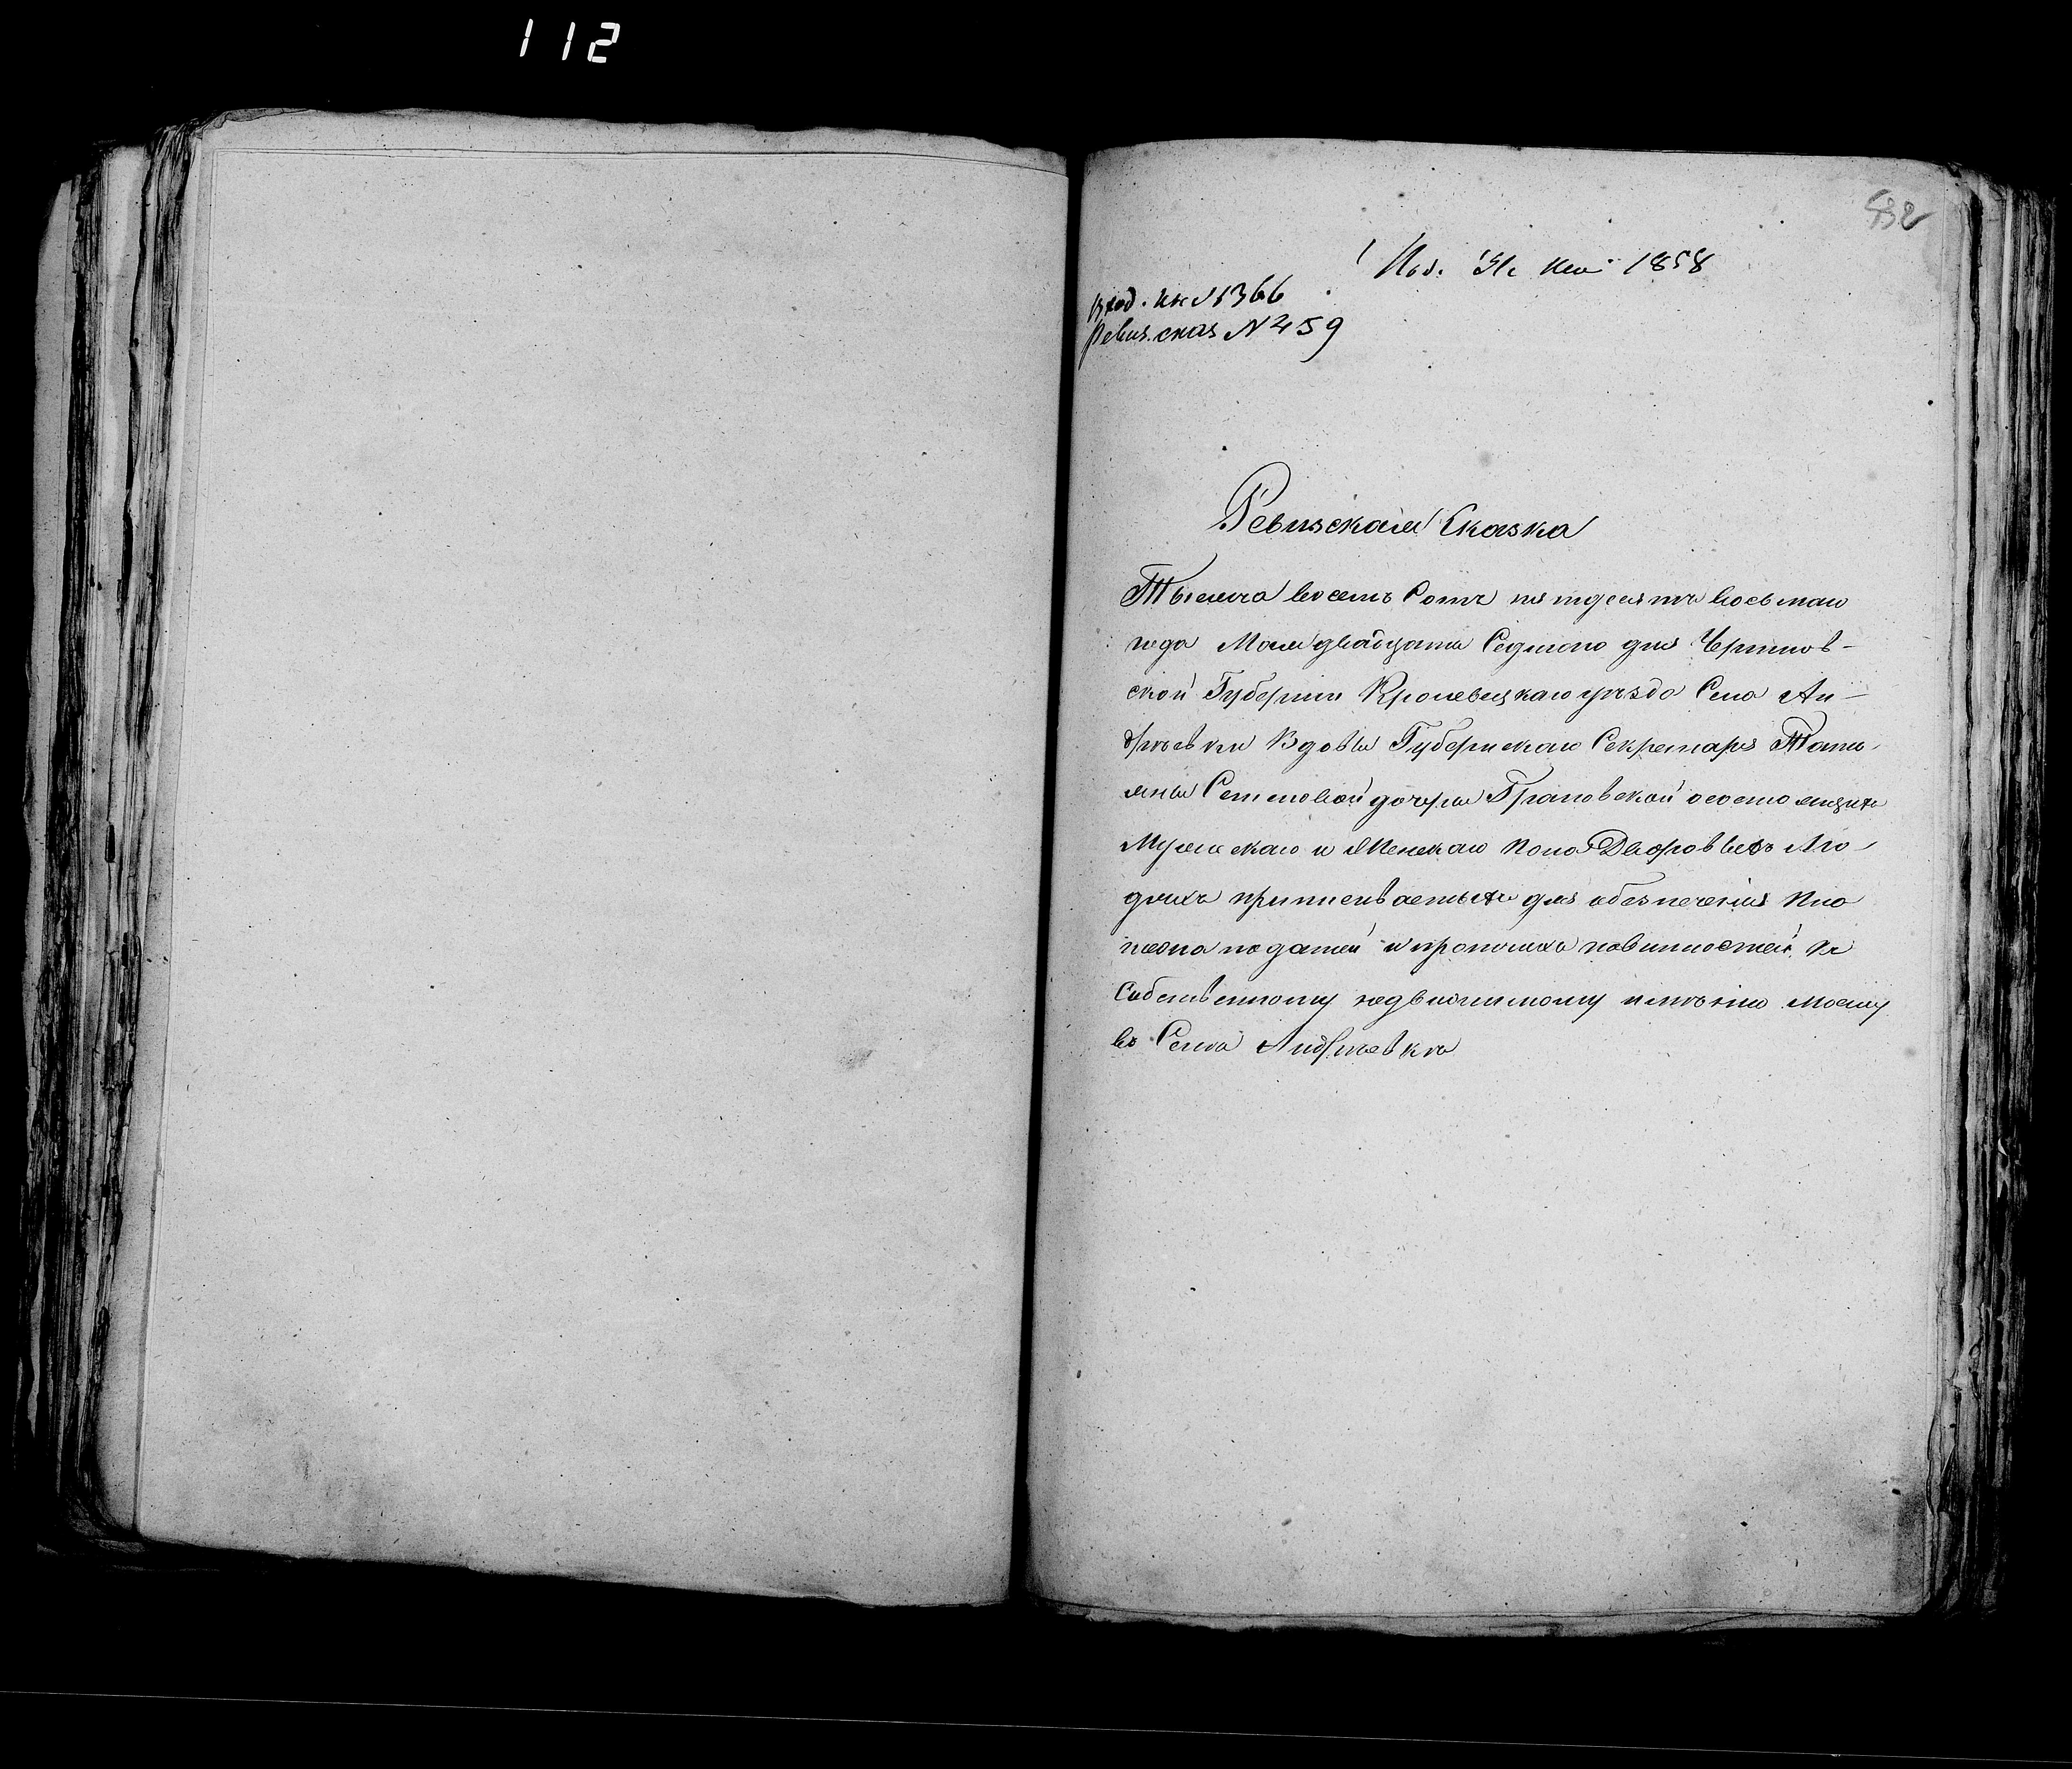 112
532
Под. 31 мая 1858
Вход. кн № 1366
Ревиз. сказ № 459
Ревизская Сказка
Тысяча восемь Сотъ пятдесятъ восьмаго
года Мая двадцать Седмого дня Чернигов-
ской Губерніи Кролевецкаго уѣзда Села Ан-
дреевки Вдовы Губернскаго Секретаря Тать-
яны Семеновой дочери Грановской о состоящихъ
Мужескаго и Женскаго пола Дворовыхъ Лю-
дяхъ приписываемыхъ для обезпеченія
податей и протчихъ повинностей, къ
Собственному недвижимому имѣнію моему
въ Селѣ Андреевкѣ